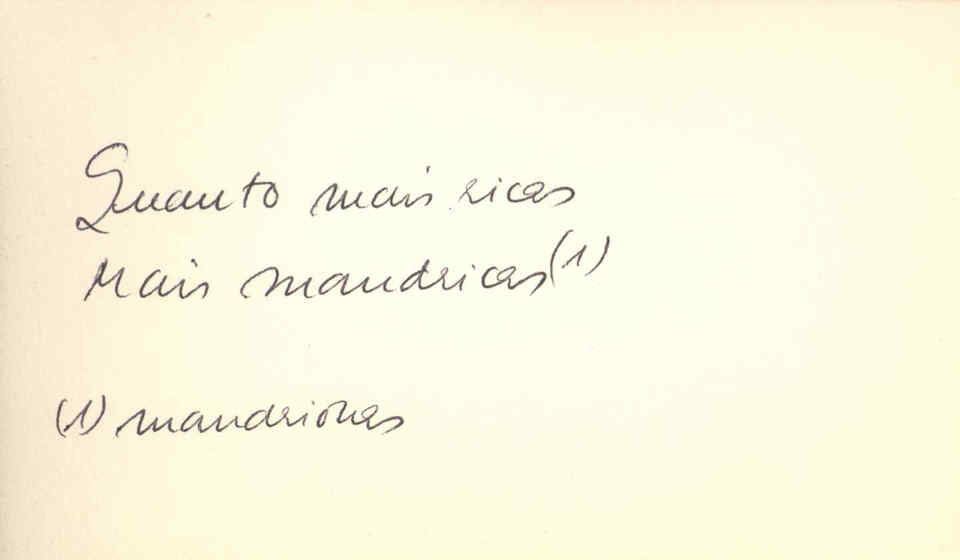 Quanto mais ricas
Mais mandricas (1)
(1) mandrionas